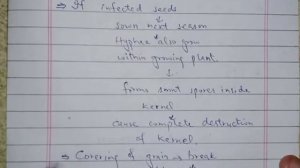 ⇒ If infected seeds
↓
sown next season
Hyphae also grow
within growing plant
↓
forms smut spores inside
kernel
cause complete destruction
of kernel
→ Covering of grain → break